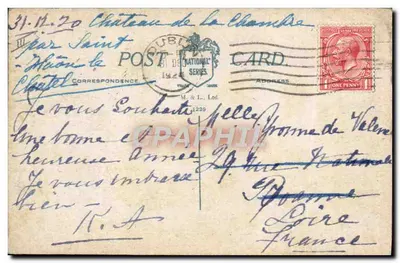 31-12-20 Château de la Chambre
par Saint
Haon le
Chatel
POST CARD.
NATIONAL
SERIES
CORRESPONDENCE
ADDRESS
M. & L., Ltd.
DUBLIN
ONE PENNY
Je vous souhaite
une bonne et
heureuse Année
Je vous embrasse
bien -
K. A
Melle Yvonne de Valence
29 Rue Nationale
Roanne
Loire
France